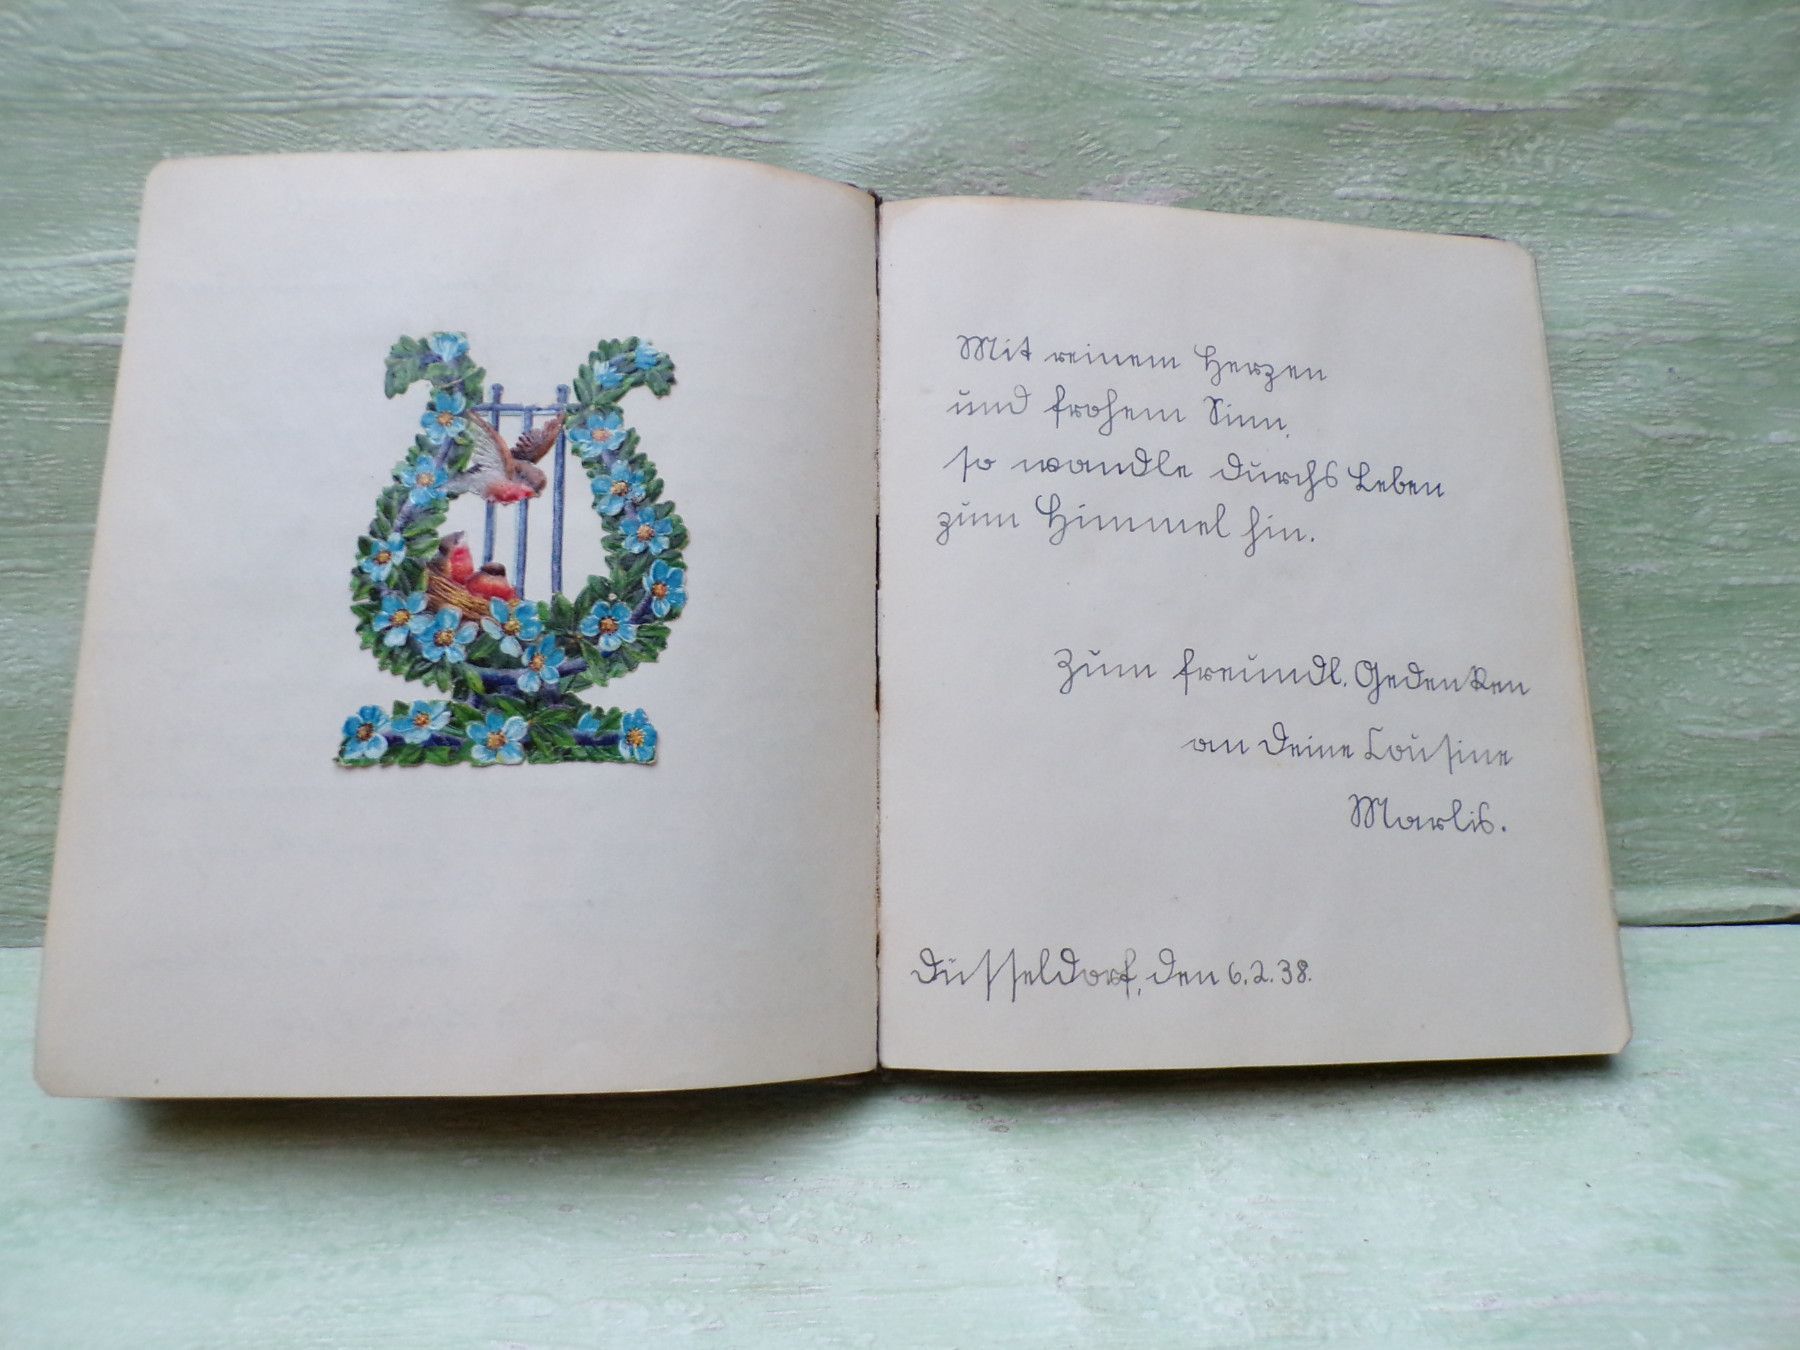 Mit reinem Herzen
und frohem Sinn,
so wandle durchs Leben
zum Himmel hin.
Zum freundl. Gedenken
an deine Cousine
Marlis.
Düsseldorf, den 6.2.38.